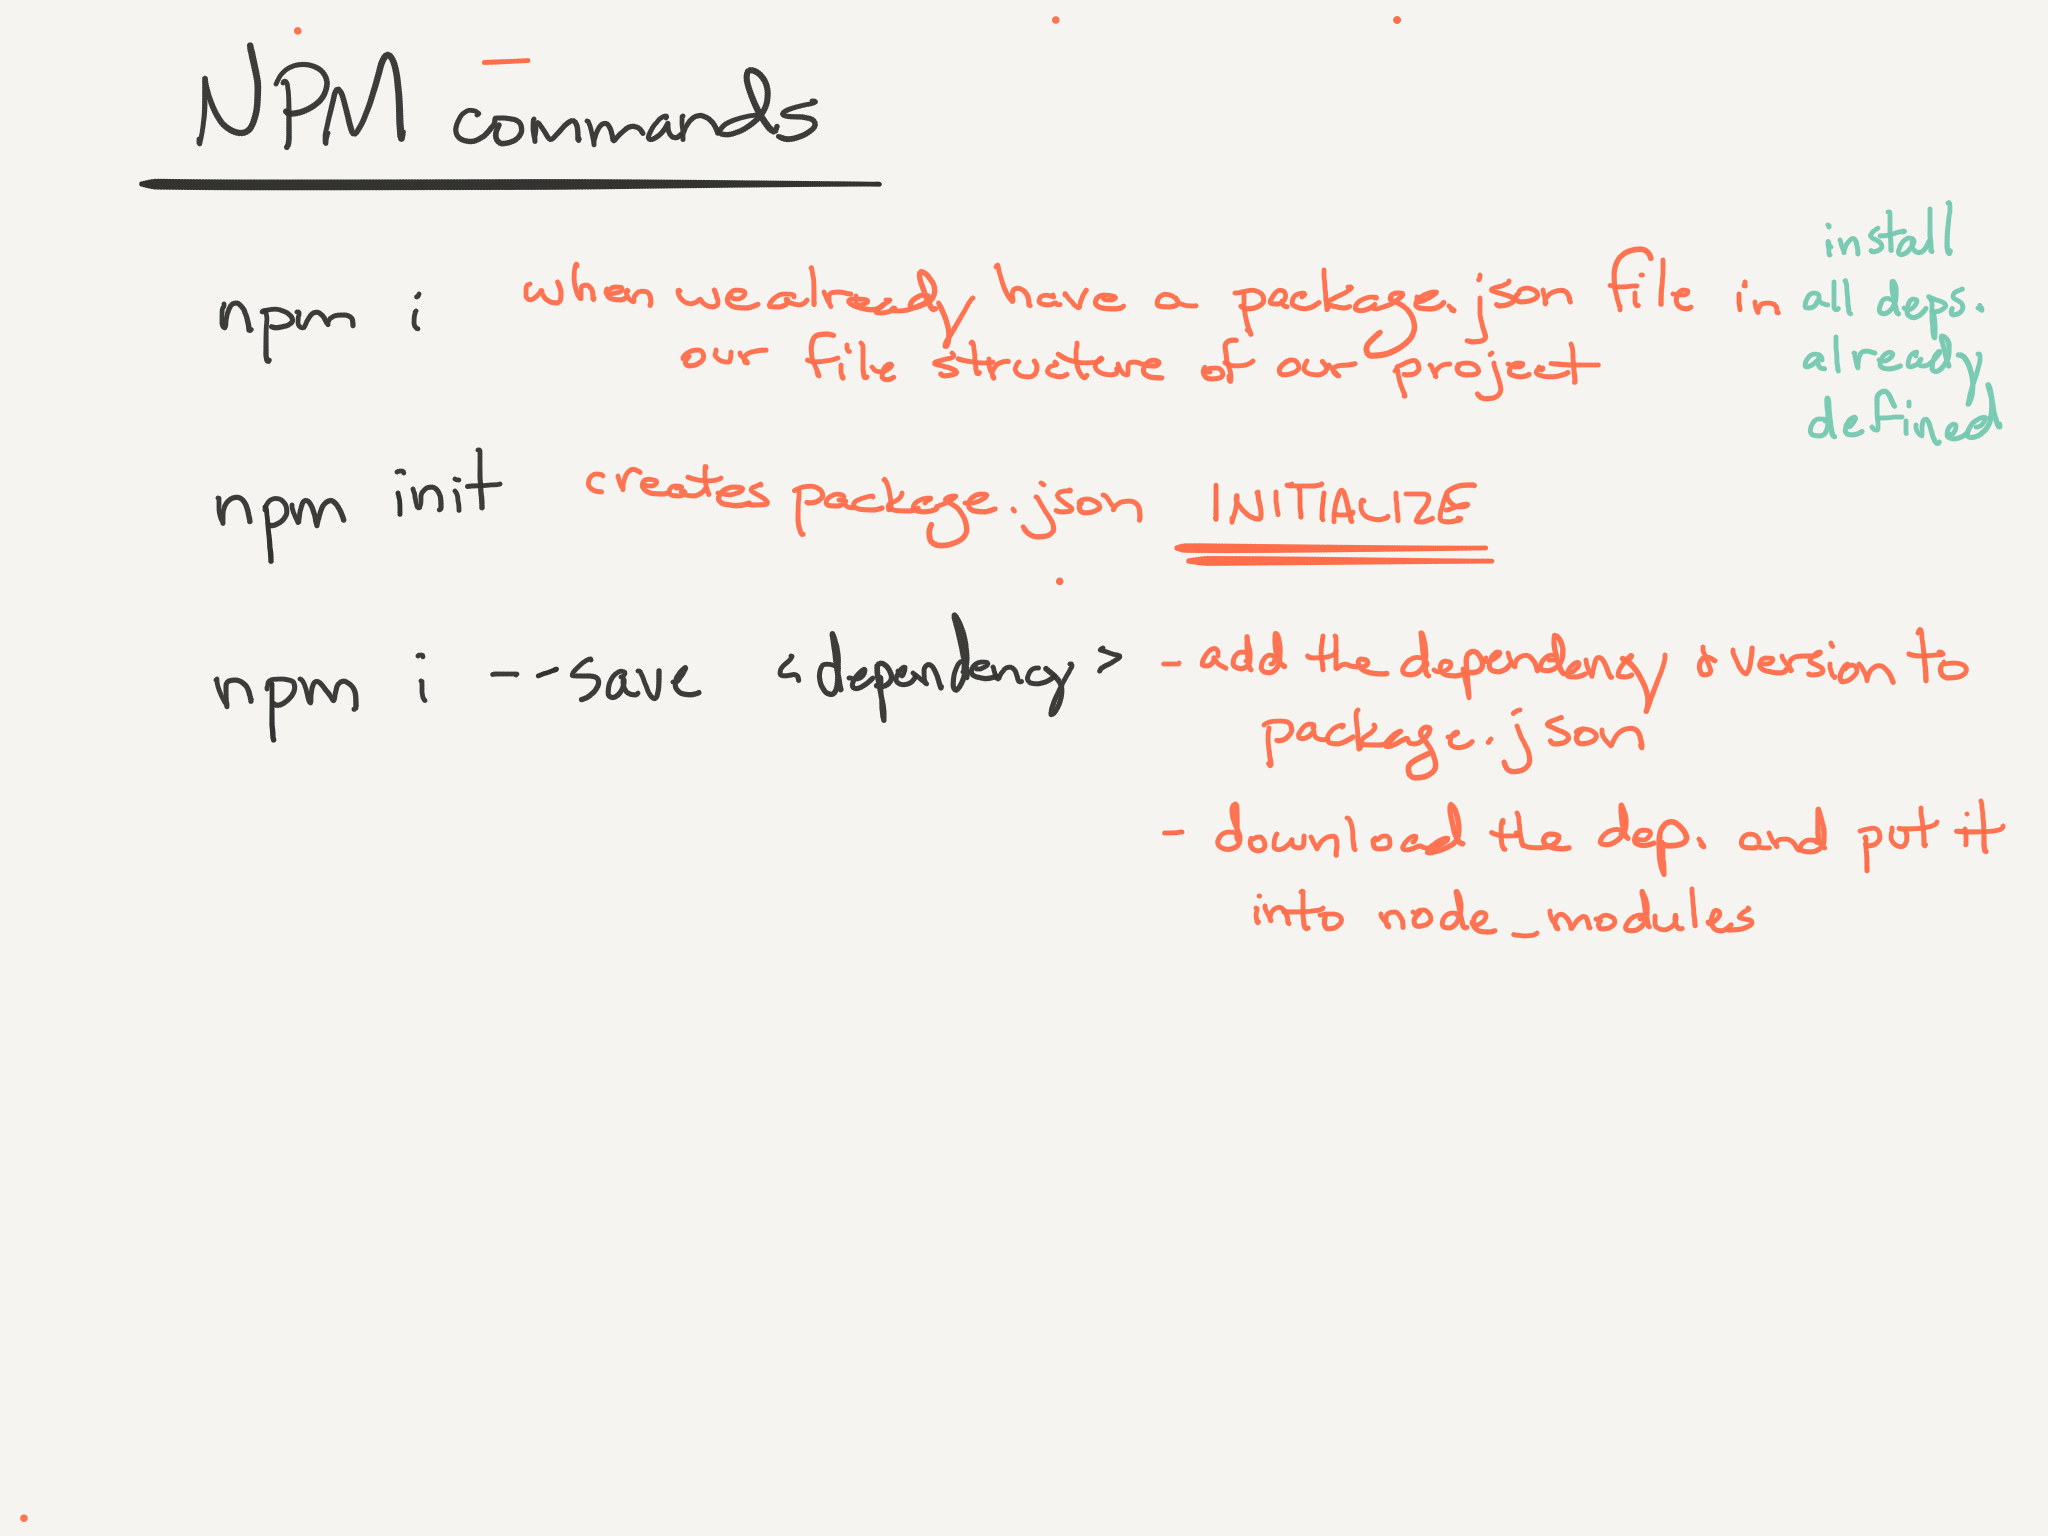 NPM commands
npm i when we already have a package.json file in
our file structure of our project
install
all deps.
already
defined
npm init creates package.json INITIALIZE
npm i --save <dependency> - add the dependency & version to
package.json
- download the dep. and put it
into node_modules